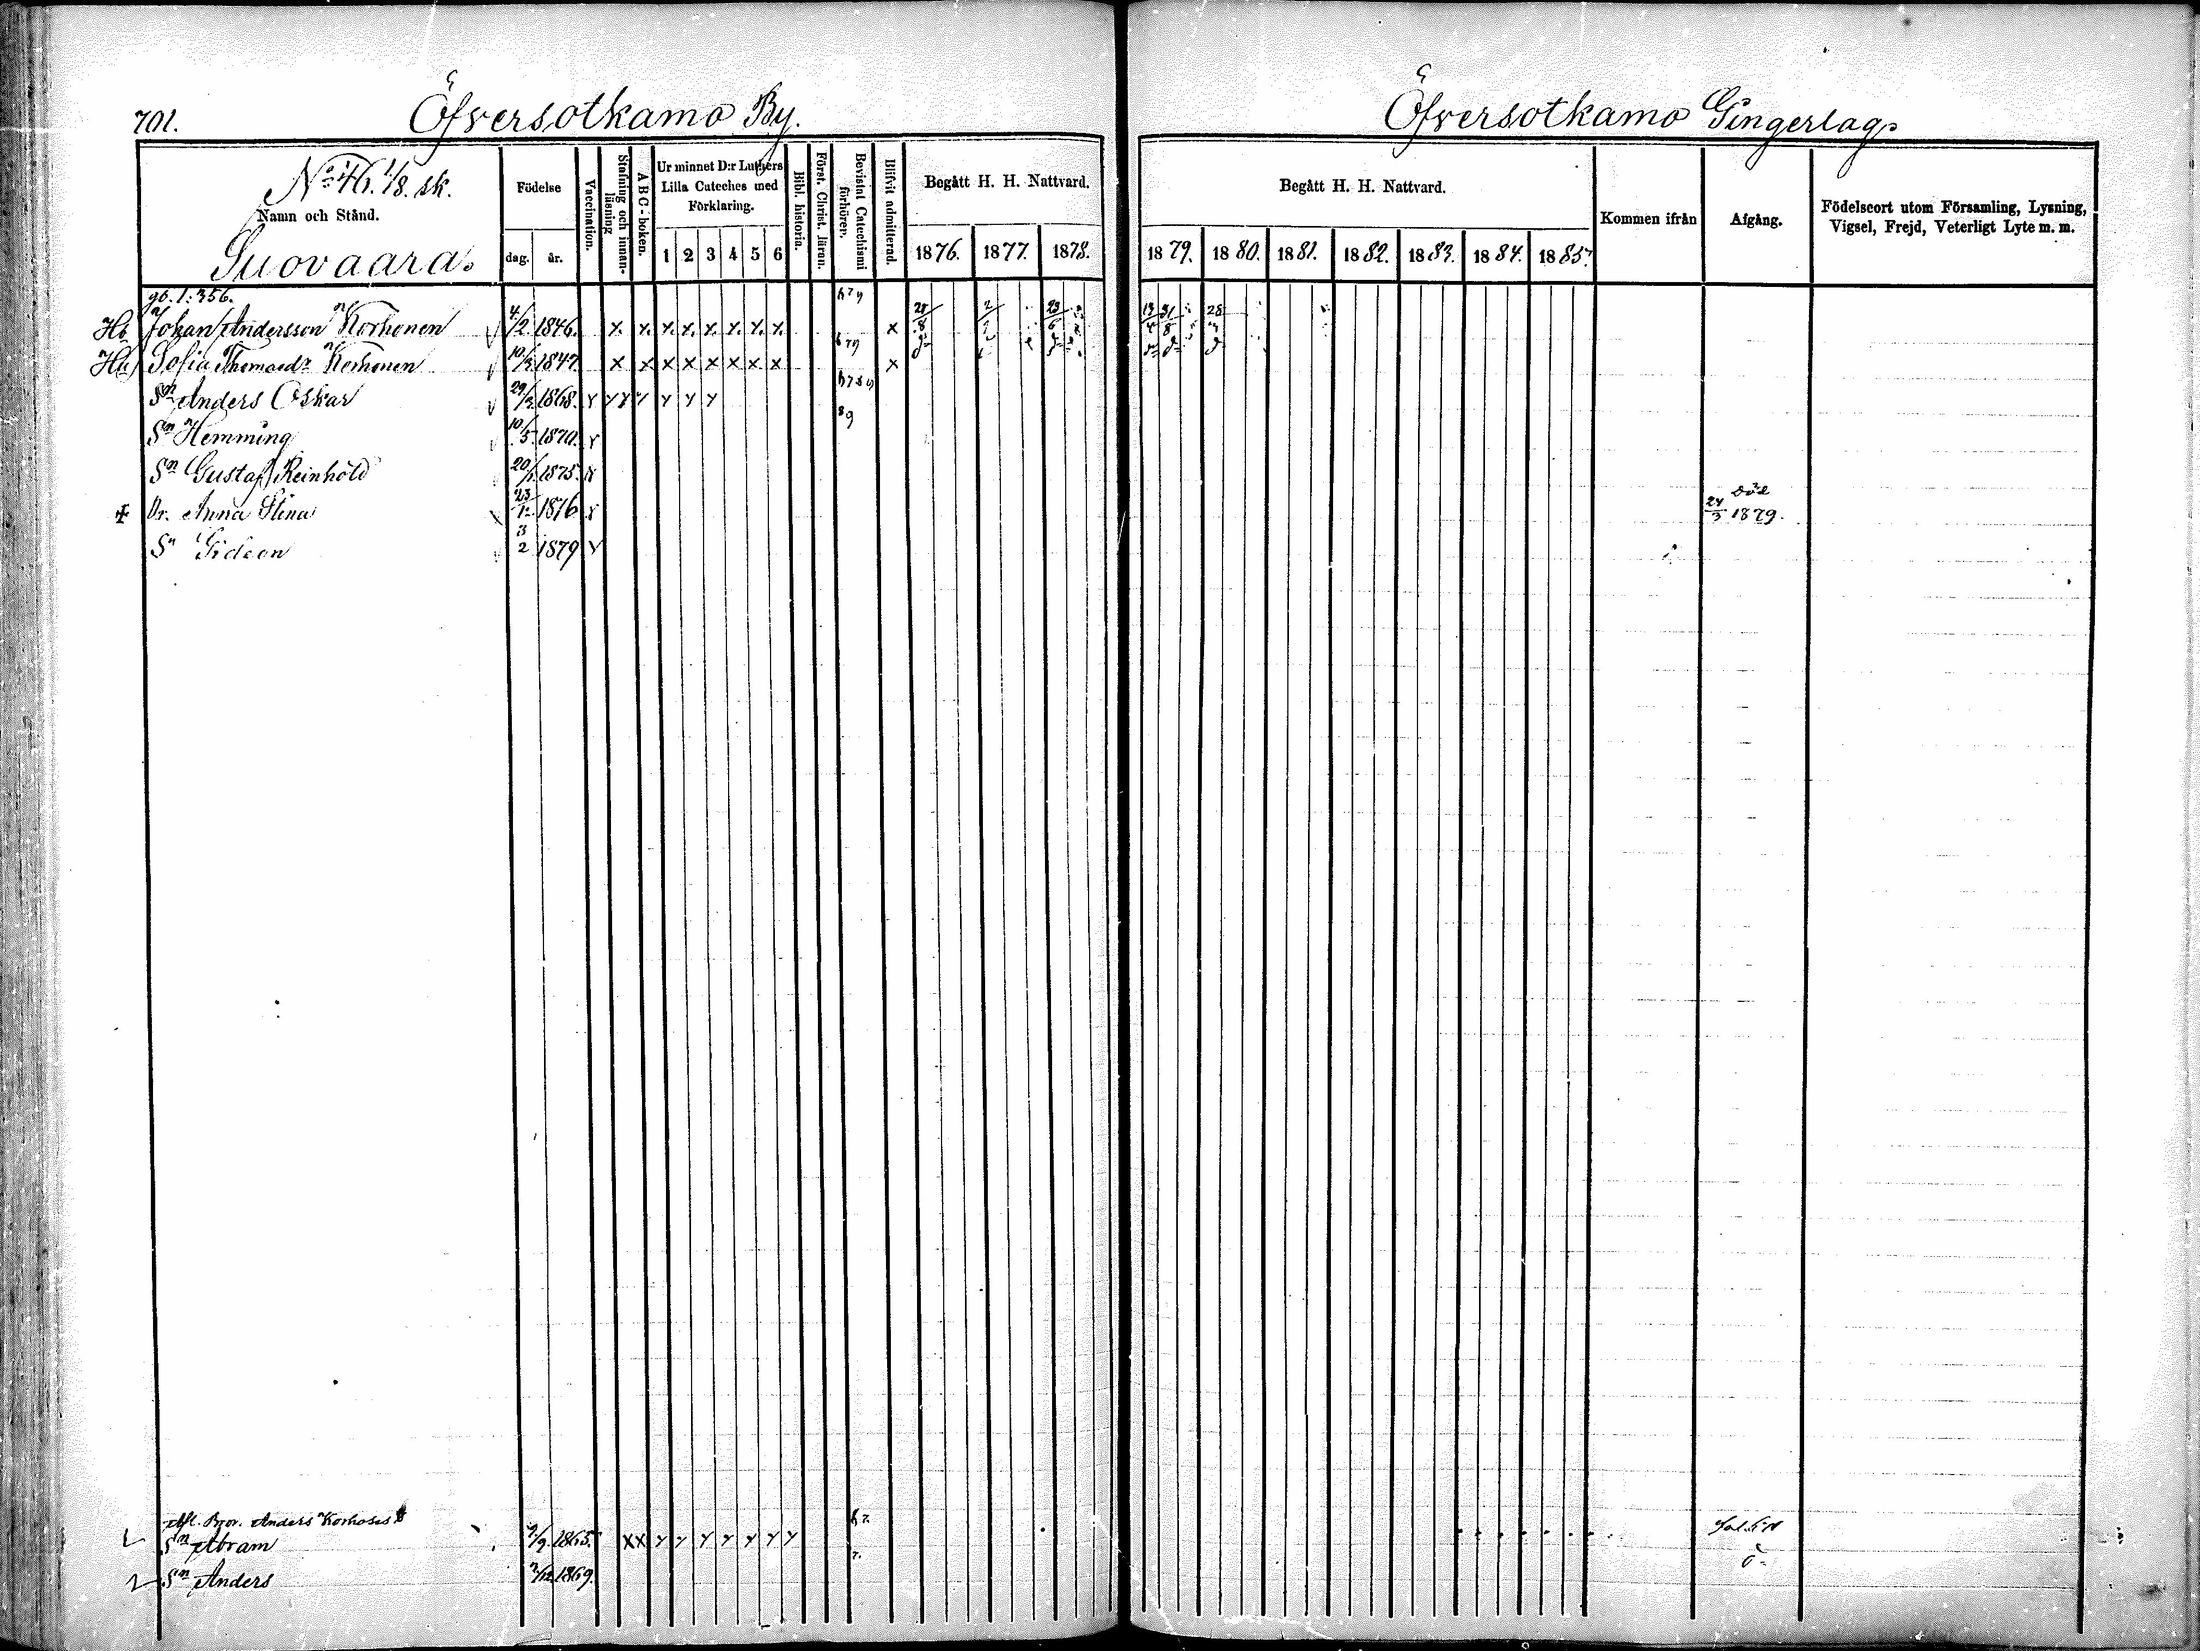 701.
Öfversotkamo By.
No 46. 1/8. sk.
Namn och Stånd.
Suovaara.
Födelse
dag. år.
Vaccination.
Stafning och innanläsning
A B C-boken.
Ur minnet D:r Luthers Lilla Cateches med Förklaring.
1 2 3 4 5 6
Bibl. historia.
Först. Christ. läran.
Bevistat Catechismi förhören.
Blifvit admitterad.
Begått H. H. Nattvard.
1876. 1877. 1878.
gb. 1:356.
Hb Johan Andersson Korhonen 4/2 1846. x x x x x x x x x
Hu Sofia Thomasdr Korhonen 10/3 1847. x x x x x x x x x
Sn Anders Oskar 29/3 1868.
Sn Hemming 10/5 1870.
Sn Gustaf Reinhold 20/1 1875.
Dr. Anna Stina 23/12 1876
Sn Gideon 3 2 1879
Afl. Bror. Anders Korhoses
Sn Abram /9 1865
Sn Anders /12 1869.
Öfversotkamo Gingerlag
Begått H. H. Nattvard.
1879. 1880. 1881. 1882. 1883. 1884. 1885.
Kommen ifrån
Afgång.
Födelseort utom Församling, Lysning, Vigsel, Frejd, Veterligt Lyte m. m.
död
24/3 1879.